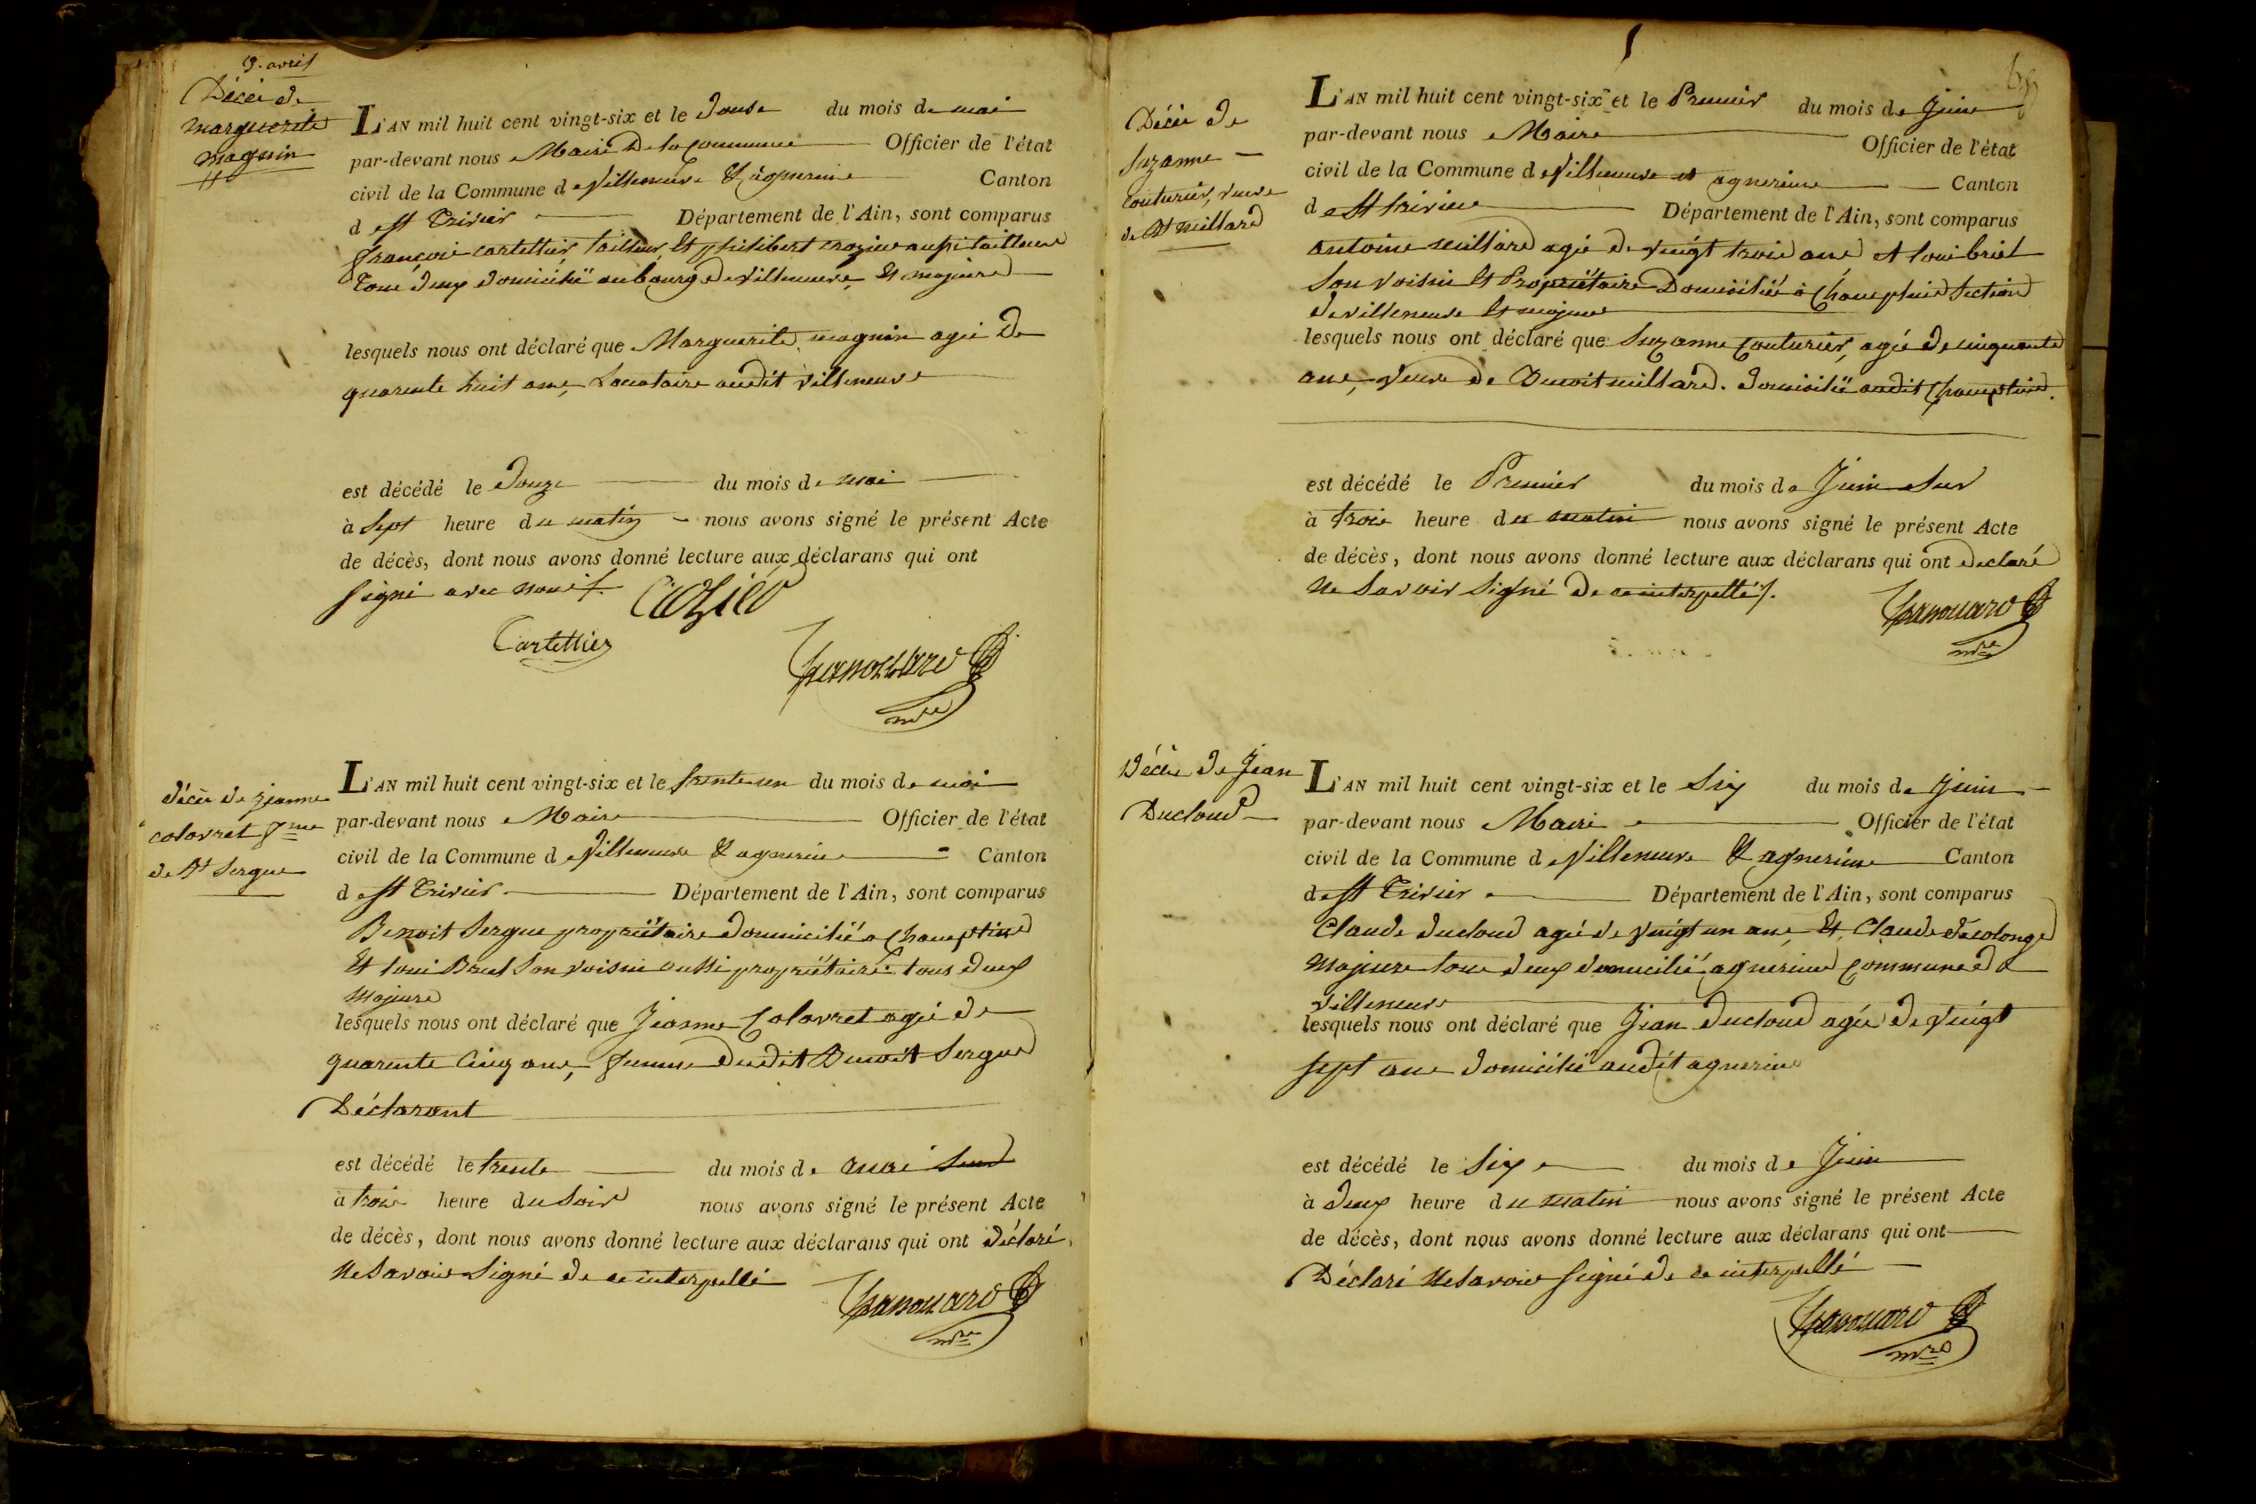 9. avril
Décès de
marguerite
magnin
L'AN mil huit cent vingt-six et le douse du mois de mai
par-devant nous Maire De la Commune Officier de l'état
civil de la Commune de Villeneuve & agnerine Canton
de St Trivier Département de l'Ain, sont comparus
françois cartellier, tailleur, Et philibert crozier aussi tailleur
Tous deux domicilié au bourg de villeneuve, Et majeure
lesquels nous ont déclaré que Marguerite magnin agée De
quarente huit ans, Locataire audit villeneuve
est décédé le Douze du mois de mai
à Sept heure du matin nous avons signé le présent Acte
de décès, dont nous avons donné lecture aux déclarans qui ont
signé avec nous /.
Cartellier
mre
décès de Jeanne
colovret fme
de Bt Sergue
L'AN mil huit cent vingt-six et le trente un du mois de mai
par-devant nous Maire Officier de l'état
civil de la Commune de Villeneuve & agnerine Canton
de St Trivier Département de l'Ain, sont comparus
Benoit Sergue propriétaire domicilié a Chaneplaine
Et loui Briel Son voisin aussi propriétaire tous deux
Majeure
lesquels nous ont déclaré que Jeanne Colovret agée de
quarente Cinq ans, femme dudit Benoit Sergue
Déclarant
est décédé le trente du mois de mai Sur
à trois heure du Soir nous avons signé le présent Acte
de décès, dont nous avons donné lecture aux déclarans qui ont déclaré
Ne Savoir Signé de ce interpellé
mre
Décès de
Suzanne
Couturier, veuve
de Bt millard
L'AN mil huit cent vingt-six et le Premier du mois de Juin
par-devant nous Maire Officier de l'état
civil de la Commune de Villeneuve et agnerine Canton
de St trivier Département de l'Ain, sont comparus
antoine millard agée de vingt trois ans Et loui briel
Son voisin Et Propriétaire Domicilié à Chaneplaine Section
de villeneuve Et majeure
lesquels nous ont déclaré que Suzanne Couturier, agée de cinquante
ans, veuve de Benoit millard. domicilié audit Chaneplaine.
est décédé le Premier du mois de Juin Sur
à trois heure du matin nous avons signé le présent Acte
de décès, dont nous avons donné lecture aux déclarans qui ont déclaré
Ne Savoir Signé De ce interpellé /.
mre
Décès de Jean
Ducloud
L'AN mil huit cent vingt-six et le Six du mois de Juin
par-devant nous Maire Officier de l'état
civil de la Commune de Villeneuve & agnerine Canton
de St Trivier Département de l'Ain, sont comparus
Claude ducloud agée de vingt un ans Et Claude decolonge
Majeure tous deux domicilié agnerine Commune de
villeneuve
lesquels nous ont déclaré que Jean ducloud agée de vingt
sept ans domicilié audit agnerine
est décédé le Six du mois de Juin
à deux heure du matin nous avons signé le présent Acte
de décès, dont nous avons donné lecture aux déclarans qui ont
Déclaré Ne Savoir signé de ce interpellé
mre